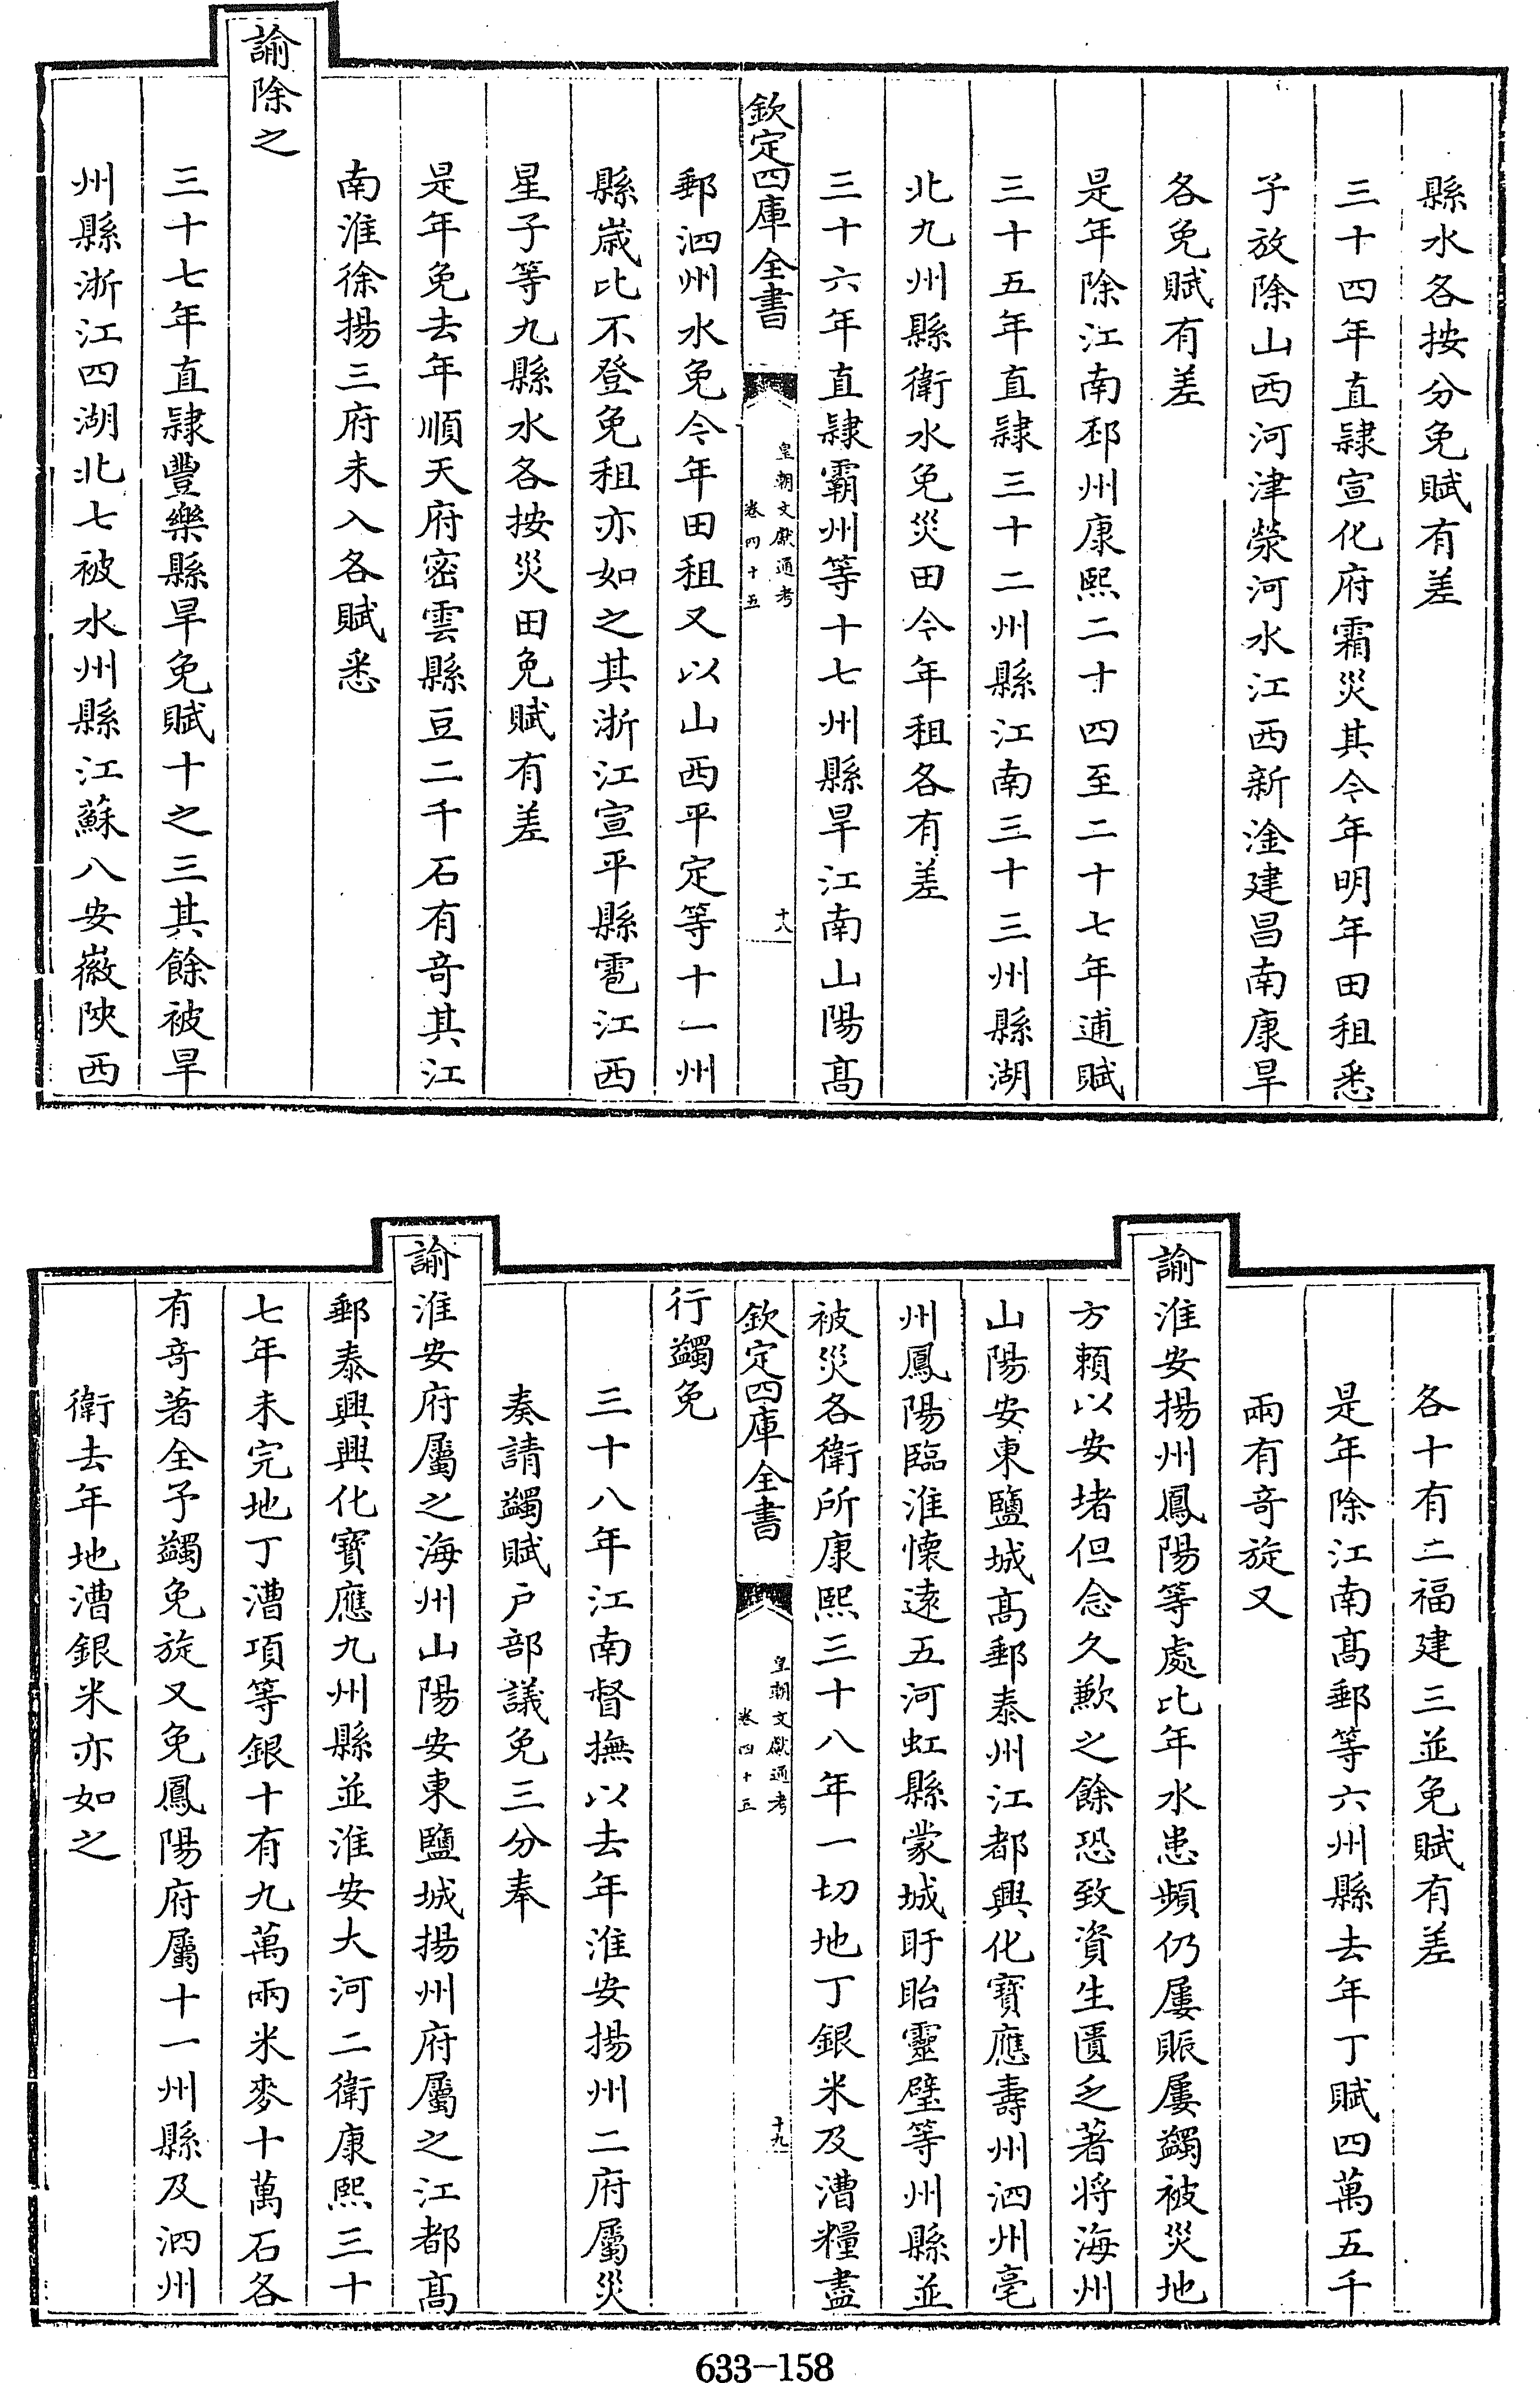 縣水各按分免賦有差
三十四年直隸宣化府霜災其今年明年田租悉
予放除山西河津滎河水江西新淦建昌南康旱
各免賦有差
是年除江南邳州康熙二十四至二十七年逋賦
三十五年直隸三十二州縣江南三十三州縣湖
北九州縣衛水免災田今年租各有差
三十六年直隸霸州等十七州縣旱江南山陽高
欽定四庫全書
皇朝文獻通考
卷四十五
十八
郵泗州水免今年田租又以山西平定等十一州
縣歳比不登免租亦如之其浙江宣平縣雹江西
星子等九縣水各按災田免賦有差
是年免去年順天府密雲縣豆二千石有竒其江
南淮徐揚三府未入各賦悉
諭除之
三十七年直隸豐樂縣旱免賦十之三其餘被旱
州縣浙江四湖北七被水州縣江蘇八安徽陝西
各十有二福建三並免賦有差
是年除江南高郵等六州縣去年丁賦四萬五千
兩有竒旋又
諭淮安揚州鳳陽等處比年水患頻仍屢賑屢蠲被災地
方賴以安堵但念久歉之餘恐致資生匱乏著將海州
山陽安東鹽城高郵泰州江都興化寶應壽州泗州亳
州鳳陽臨淮懷遠五河虹縣蒙城盱眙靈璧等州縣並
被災各衛所康熙三十八年一切地丁銀米及漕糧盡
欽定四庫全書
皇朝文獻通考
卷四十五
十九
行蠲免
三十八年江南督撫以去年淮安揚州二府屬災
奏請蠲賦户部議免三分奉
諭淮安府屬之海州山陽安東鹽城揚州府屬之江都高
郵泰興興化寶應九州縣並淮安大河二衛康熙三十
七年未完地丁漕項等銀十有九萬兩米麥十萬石各
有竒著全予蠲免旋又免鳳陽府屬十一州縣及泗州
衛去年地漕銀米亦如之
633-158